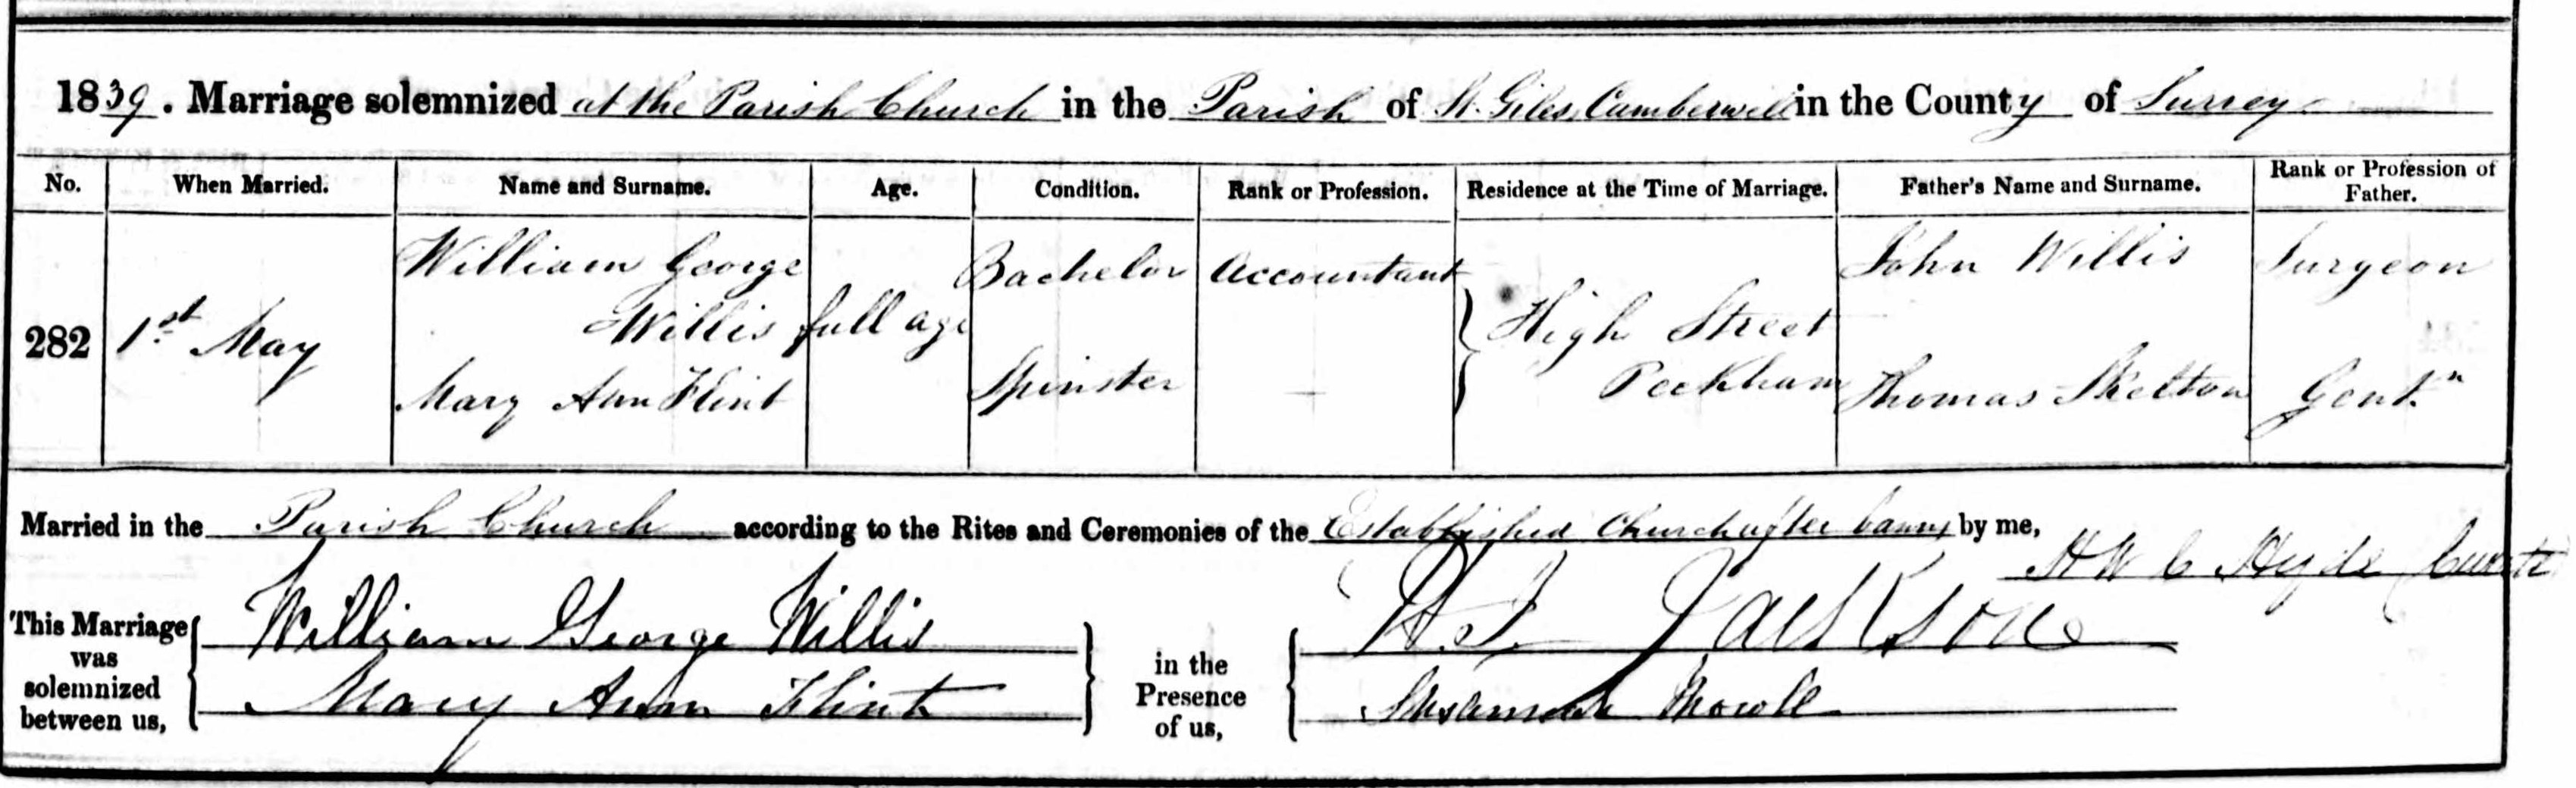 1839. Marriage solemnized at the Parish Church in the Parish of St. Giles, Camberwell in the County of Surrey
No. When Married. Name and Surname. Age. Condition. Rank or Profession. Residence at the Time of Marriage. Father's Name and Surname. Rank or Profession of Father.
282 1st May William George Willis full age Bachelor Accountant High Street Peckham John Willis Surgeon
Mary Ann Flint Spinster — Thomas Skelton Gentn
Married in the Parish Church according to the Rites and Ceremonies of the Established Church after banns by me,
H W C Hyde Curate
This Marriage was solemnized between us,
William George Willis
Mary Ann Flint
in the Presence of us,
Jackson
Susannah